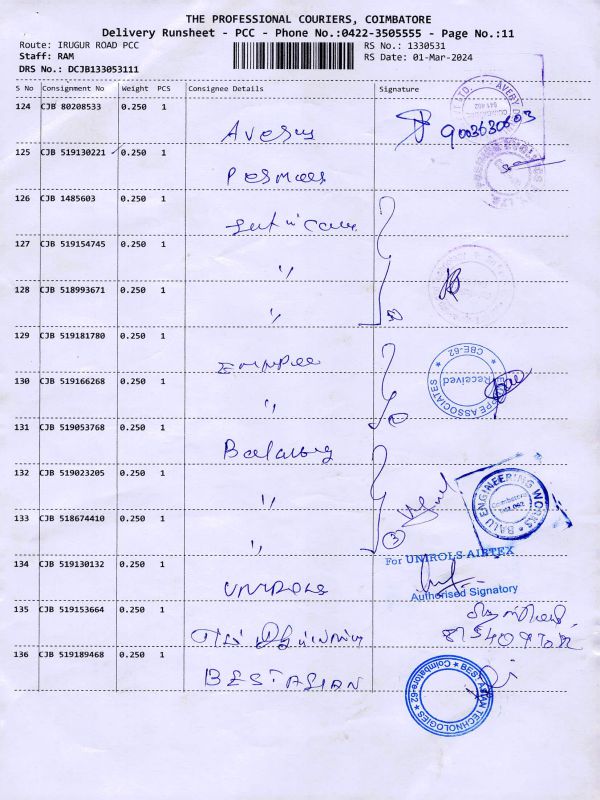 THE PROFESSIONAL COURIERS, COIMBATORE
Delivery Runsheet - PCC - Phone No.:0422-3505555 - Page No.:11
Route: IRUGUR ROAD PCC RS No.: 1330531
Staff: RAM RS Date: 01-Mar-2024
DRS No.: DCJB133053111
S No Consignment No Weight PCS Consignee Details Signature
124 CJB 80208533 0.250 1
Avery 9003630603
125 CJB 519130221 0.250 1
126 CJB 1485603 0.250 1
127 CJB 519154745 0.250 1
"
128 CJB 518993671 0.250 1
"
129 CJB 519181780 0.250 1
CBE-62
130 CJB 519166268 0.250 1
"
Received
ASSOCIATES
131 CJB 519053768 0.250 1
132 CJB 519023205 0.250 1
"
BALU ENGINEERING WORKS
Coimbatore
133 CJB 518674410 0.250 1
" 3
For UNIROLS AIRTEX
134 CJB 519130132 0.250 1
UNIROLS
Authorised Signatory
135 CJB 519153664 0.250 1
136 CJB 519189468 0.250 1
BEST ASIAN
BEST ASIAN TECHNOLOGIES
Coimbatore-62